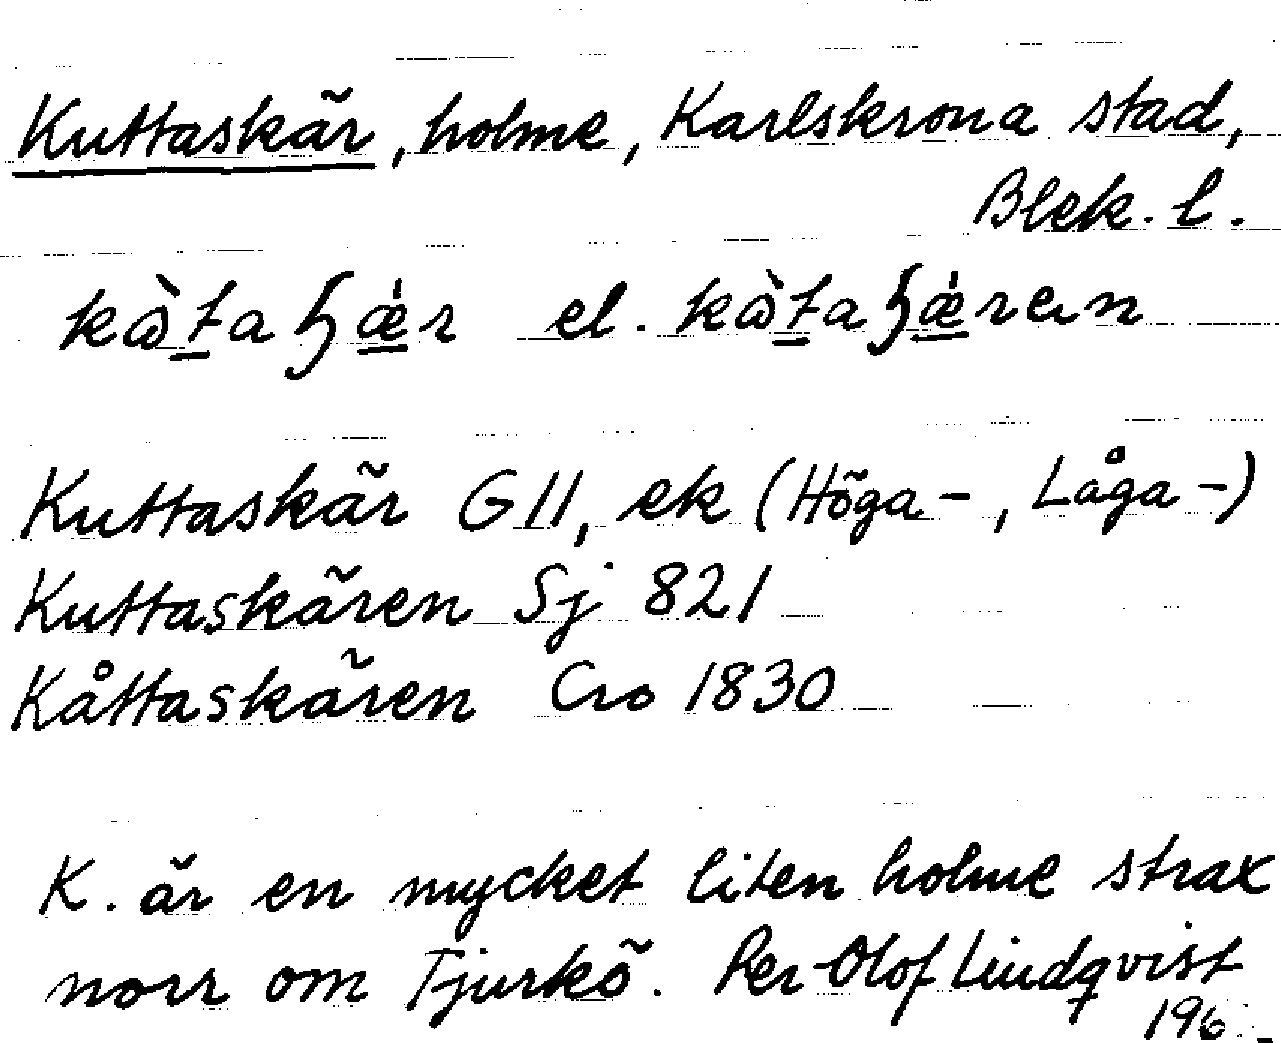 Kuttaskär, holme, Karlskrona stad,
Blek. l.
el.
Kuttaskär G 11, ek (Höga-, Låga-)
Kuttaskären Sj 821
Kåttaskären Cro 1830
K. är en mycket liten holme strax
norr om Tjurkö. Per-Olof Lindqvist